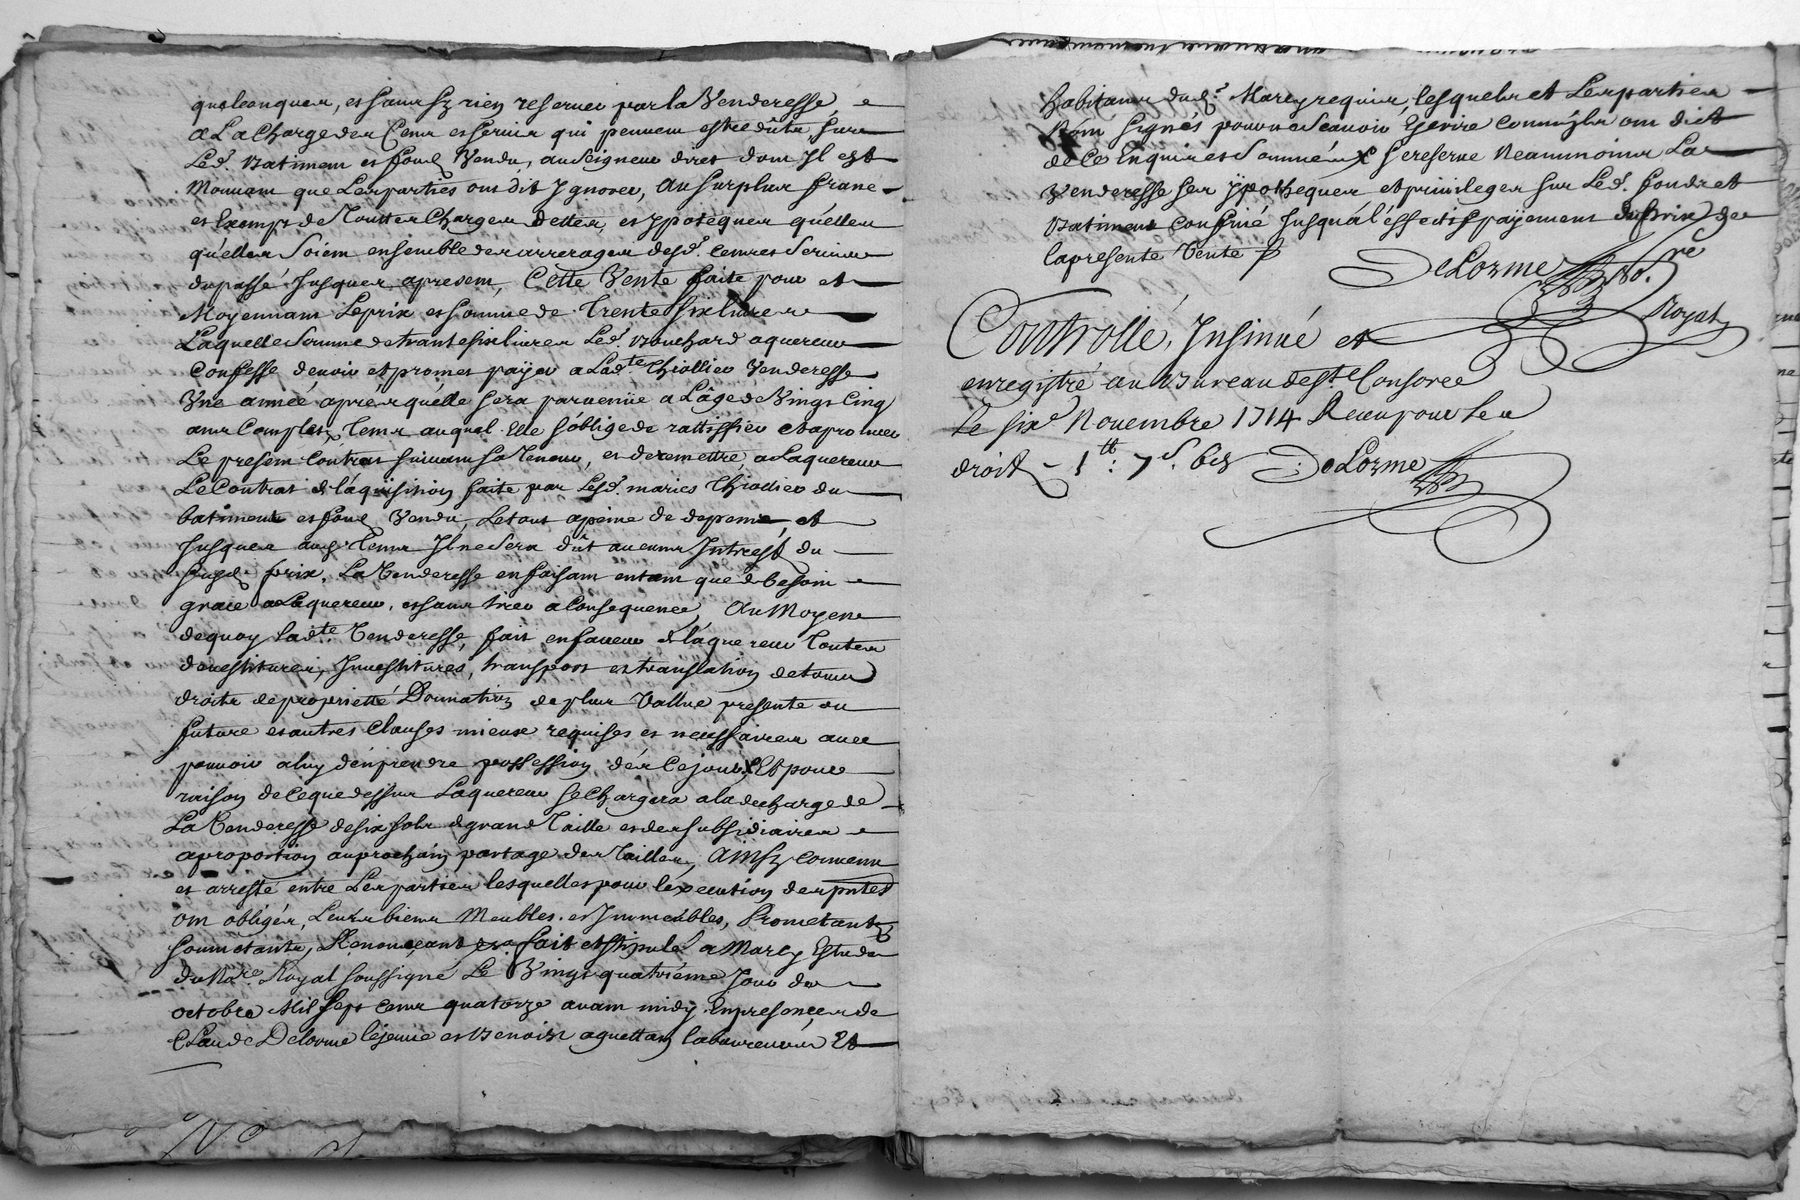 quelconques, et sans sy rien reserver par la Venderesse
a La Charge des Cens et servis qui peuvent estre dûts, sur
Led. Batiment et fond Vendu, au Seigneur dict dont Jl est
Mouvant que Les parties ont dit Jgnorer, Au surplus franc
et Exempt de Toutter Charges dettes, et ypoteques quelles
qu'elles soient ensemble des arrerages desd. cens et servis
du passé Jusques apresent, Cette Vente faite pour et
Moyennant Le prix et somme de Trente six livres
Laquelle Somme de trante six livres Led. Bouchard aquereur
Confesse devoir et promet païer a Ladte Thiollier Venderesse
Vne année aprés qu'elle sera parvenüe a L'age de Vingt Cinq
ans Complets, Tems auquel Elle s'oblige de rattiffier et aprouver
Le present Contrat suivant sa Teneur, et de remettre a Laquereur
Le Contrat de l'aquisition faite par Lesd. mariés Thiollier du
batiment et fond Vendu, Le tout a peine de depens, et
Jusques aud. Tems Jl ne sera dût aucuns Jntrest du
susd. prix, La Venderesse en faisant entant que de besoin
grace a Laquereur, et sans tirer a Consequence, Au Moyen
de quoy Ladte Venderesse, fait en faveur de l'aquereur Toutes
devestitures, Jnvestitures, transport et translation de tous
droits de proprietté Donnation de plus Vallue presente ou
future et autres Clauses mieux requises et necessaires avec
pouvoir a luy d'en prendre possession dés Ce jour, Et pour
raison de Ce que dessus Laquereur se Chargera a la decharge de
La Venderesse de six sols de grand Taille et des subsidiaires
a proportion au prochain partage des Tailles, Ainsy convenu
et arresté entre Les parties lesquelles pour l'éxecution des pntes
ont obligés, Leurs biens Meubles et Jmmeubles, Prometants
soumetants, Renonçeant fait et stipulé a Marcy Estude
du Nore. Royal soussigné Le Vingt quatriéme Jour du
octobre Mil Sept cens quatorze avant midy En presences de
Claude Delorme lejeune et Benoist aguettan laboureurs, Et
habitans dud. Marcy requis, lesquels et Les parties
n'ont signés pour ne Scavoir Escrire Comm'jls ont dict
de Ce Enquis et Sommés, se reserve Neanmoins La
Venderesse ses ypotheques et privileges sur Led. fond et
Batiment Confiné Jusqu'a l'éffectif payement du prix de
la presente Vente
DeLorme No.re
Royal
Controllé, Jnsinué et
enregistré au Bureau de St.
le sixe Novembre 1714 Receu pour les
droit - 1 tt: 7 s. 6 d DeLorme